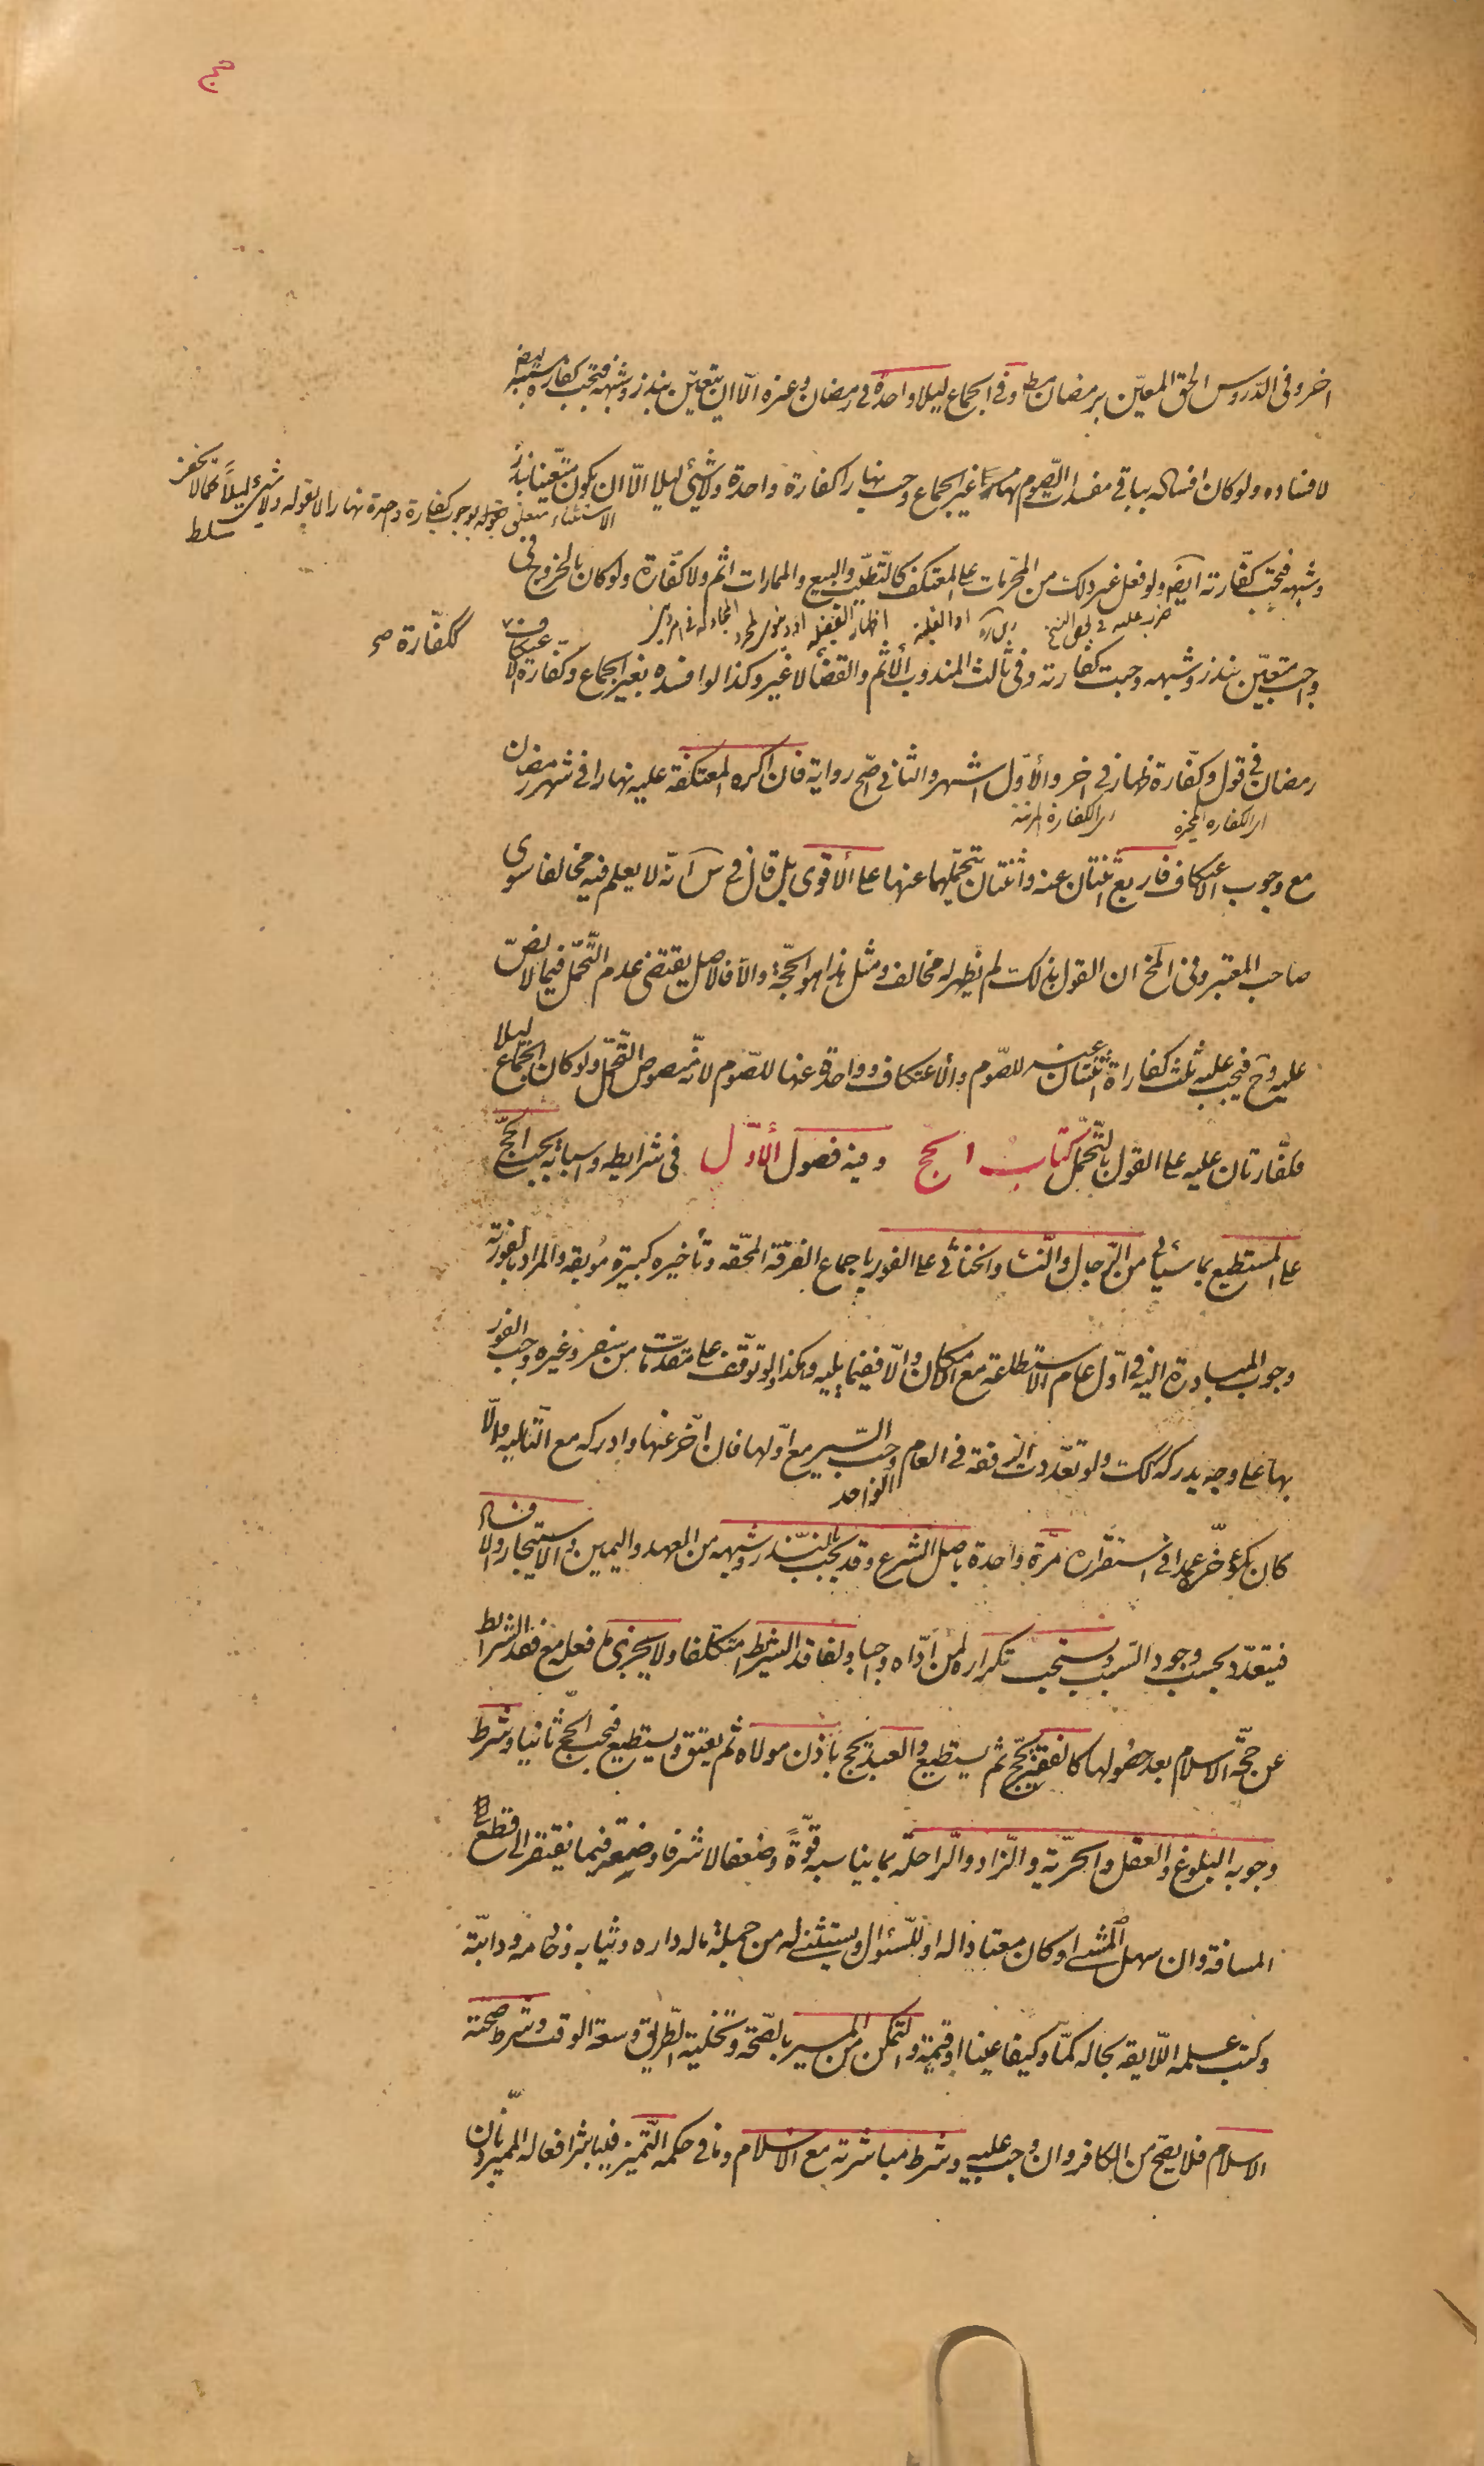 حج
اخر وفى الدّروس الحق المعيّن برمضان مط وفى الجماع ليلا واحدة فى رمضان وغيره الّا ان يتعيّن بنذر وشبهه فتجب كفارة بسببه ايض
لافساده ولو كان افساده بباقى مفسدات الصّوم غير الجماع وجب نهارا كفارة واحدة ولا شىء ليلا الّا ان يكون متعيّنا بنذر
الاستثناء متعلق بقوله بوجوب كفارة واحدة نهارا لا بقوله ولا شىء ليلًا كما لا يخفى
سلط
وشبهه فيجب كفّارته ايض ولو فعل غير ذلك من المحرّمات على المعتكف كالتّطيّب والبيع والممارات اثم ولا كفّارة ولو كان بالخروج فى
ضرب عليه فى بعض النسخ
المجادلة فى امر
واجب متعيّن بنذر وشبهه وجبت كفارته وفى ثالث المندوب الأثم والقضاء لا غير وكذا لو افسده بغير الجماع وكفّارة الاعتكاف ككفّارة صح
رمضان فى قول وكفّارة ظهار فى اخر والأوّل اشهر والثانى اصّح رواية فان اكره المعتكفة عليه نهارا فى شهر رمضان
اى الكفارة المخيرة اى الكفارة المرتبة
مع وجوب الاعتكاف فاربع اثنتان عنه واثنتان يتحمّلهما عنها على الأقوى بل قال فى س انّه لا يعلم فيه مخالفا سوى
صاحب المعتبر وفى المخ ان القول بذلك لم يظهر له مخالف ومثل هذا هو الحجّة والّا فالاصل يقتضى عدم التّحمّل فيما لا نصّ
عليه وح فيجب عليه ثلث كفاراة اثنتان عنه للصّوم والأعتكاف وواحدة عنها للصّوم لانّه منصوص التّحمّل ولو كان الجماع ليلا
فكفّارتان عليه على القول بالتّحمّل كتاب الحج وفيه فصول الأوّل فى شرايطه واسبابه يجب الحجّ
على المستطيع بما سيأتى من الرّجال والنّساء والخناثى على الفور باجماع الفرقة المحّقه وتأخيره كبيرة مُوبقه والمراد بالفوريّه
وجوب المبادرة اليه فى اوّل عام الاستطاعة مع الامكان والّا ففيما يليه وهكذا ولو توّقف على مقدّمات من سفر وغيره وجب الفور
بها على وجه يدركه كك ولو تعدّدت الرفقة فى العام الواحد وجب السّير مع اوّلها فان اخّر عنها وادركه مع التّالية والّا
كان كمؤخّره عمدا فى استقراره مَرّة واحدة باصل الشرع وقد يجب بالنّذر وشبهه من العهد واليمين والاستيجار والافساد
فيتعدّد بحسب وجود السّبب ويستحب تكراره لمن ادّاه واجبا ولفاقد الشرايط متكلّفا ولا يجزى ما فعل مع فقد الشرايط
عن حجّة الاسلام بعد حصُولها كالفقير يحجّ ثم يستطيع والعبد يحج باذن مولاه ثم يعتق ويستطيع فيجب الحجّ ثانيا وشرط
وجوبه البلوغ والعقل والحرّية والزّاد والرّاحلة بما يناسبه قوّةً وضعفا لا شرفا وضعة فيما يفتقر الى قطع
المسافة وان سهل المشى او كان معتادا له او للسّئوال ويستثنى له من جملة ماله داره وثيابه وخادمه ودابّته
وكتب علمه اللّايقه بحاله كمّا وكيفا عينا او قيمة والتمكن من المسير بالصّحة وتخلية الطّريق وسعة الوقت وشرط صحّته
الاسلام فلا يصّح من الكافر وان وجب عليه وشرط مباشرته مع الاسلام وما فى حكمه التّميز فيباشر افعاله المميز وباذن